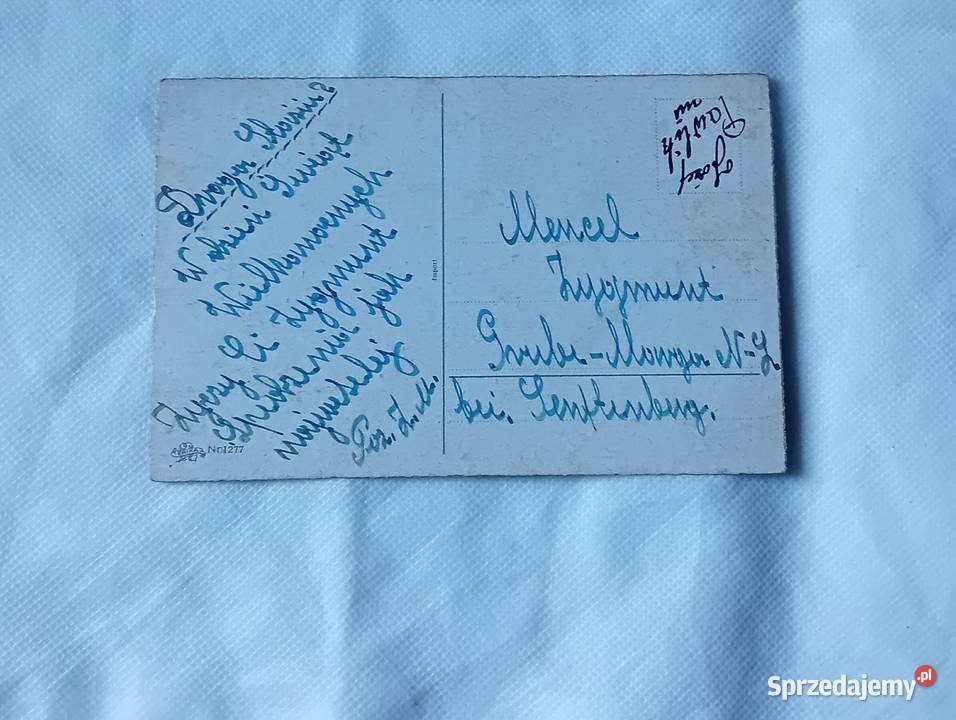 Droga Stasiu?
W dzień Świąt
Wielkanocnych
Życzy Ci Zygmunt
Spędzenia jak
najweselej
Poz. Z. M.
No 1277
Import
Józef
Pawlik
Mencel
Zygmunt
Grube-Marga N-L
bei. Senftenberg.
Sprzedajemy.pl